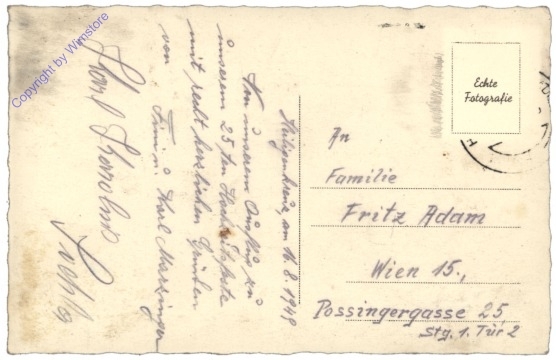 Copyright by Winstore
Echte
Fotografie
Heiligenkreuz, am 16.8.1948
Von unserem Ausflug zu
unserem 25 ten Hochzeitsfeste
mit recht herzlichen Grüßen
von
Karl
Karl
An
Familie
Fritz Adam
Wien 15.,
Possingergasse 25
Stg. 1. Tür 2